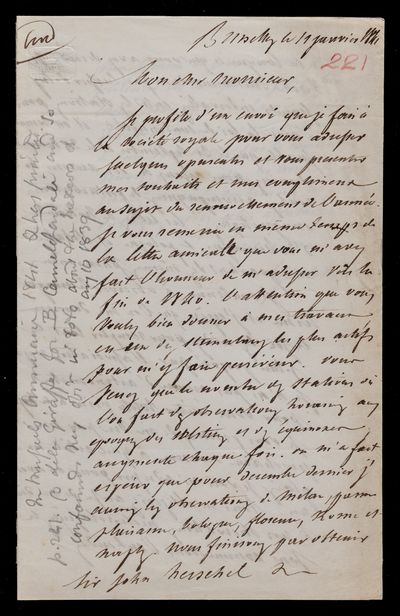 Bruxelles le 11 janvier 1841
221
Mon cher monsieur,
Je profite d'un envoi que je fais à
la société royale pour vous adresser
quelques opuscules et vous présenter
mes souhaits et mes complimens
au sujet du renouvellement de l'année.
Je vous remercie en même temps de
la lettre amicale que vous m'avez
fait l'honneur de m'adresser vers la
fin de 1840. L'attention que vous
voulez bien donner à mes travaux
est un des stimulans les plus actifs
pour m'y faire persévérer. Vous
verrez que le nombre des stations où
l'on fait des observations horaires aux
époques des solstices et des équinoxes
augmente chaque fois. On m'a fait
espérer que pour décembre dernier j'
aurais les observations de Milan, parme
plaisance, bologne, florence, Rome et
naples. Nous finirons par obtenir
Sir John Herschel
1841
p. 241
B Camelopardali and so
Aug 10 1839